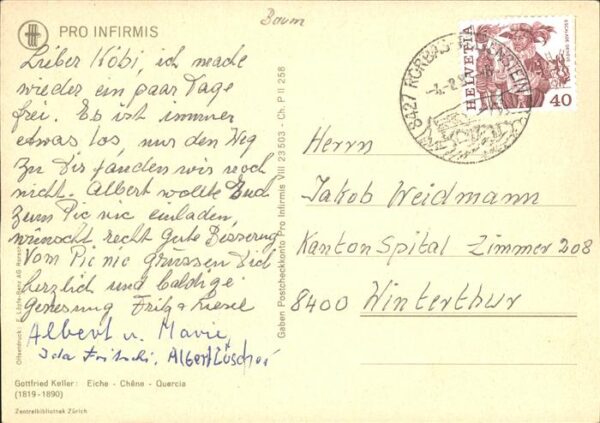 Baum
PRO INFIRMIS
Lieber Köbi, ich mache
wieder ein paar Tage
frei. Es ist immer
etwas los, nur den Weg
zu Dir fanden wir noch
nicht. Albert wollte Euch
zum Pic nic einladen,
wünscht recht gute Besserung
Vom Pic nic grüssen Dich
herzlich und baldige
Genesung Fritz + Liesel
Albert u. Marie,
Ida Fritschi, Albert Lüscher
Gottfried Keller: Eiche - Chêne - Quercia
(1819-1890)
Zentralbibliothek Zürich
Gaben Postcheckkonto Pro Infirmis VIII 23 503 - Ch. P II 258
8427 RORBAS-FREIENSTEIN
HELVETIA
40
Herrn
Jakob Weidmann
Kanton Spital Zimmer 208
8400 Winterthur